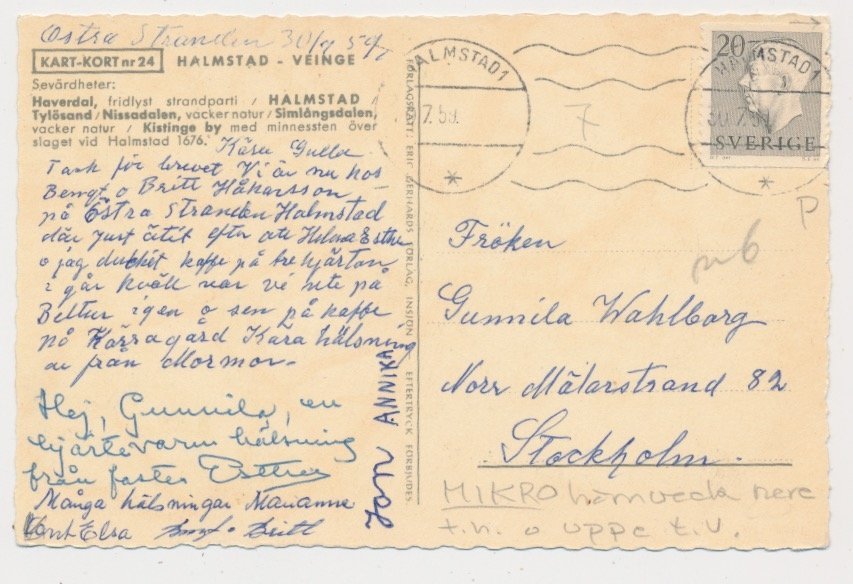 Östra Stranden 30/7 59
KART-KORT nr 24 HALMSTAD - VEINGE
Sevärdheter:
Haverdal, fridlyst strandparti / HALMSTAD /
Tylösand / Nissadalen, vacker natur / Simlångsdalen,
vacker natur / Kistinge by med minnessten över
slaget vid Halmstad 1676.
Kära Gullan
Tack för brevet Vi är nu hos
Bengt o Britt Håkansson
på Östra Stranden Halmstad
där just ätit efter att Helena Esther
o jag druckit kaffe på tre hjärtan
i går kväll var vi ute på
Biltur igen o sen på kaffe
på Kärragård Kära hälsning
ar från Mormor.
Hej, Gunnila, en
hjärtevarm hälsning
från faster Esther
Många hälsningar Marianne
Tant Elsa Bengt o Britt
Jan ANNIKA
FÖRLAGSRÄTT: ERIC GERHARDS FÖRLAG, INSJÖN EFTERTRYCK FÖRBJUDES
HALMSTAD 1
7.59.
7
20
HALMSTAD 1
30.7.59
SVERIGE
P
n6
Fröken
Gunnila Wahlborg
Norr Mälarstrand 82
Stockholm.
MIKRO hörnveck nere
t.h. o uppe t.v.